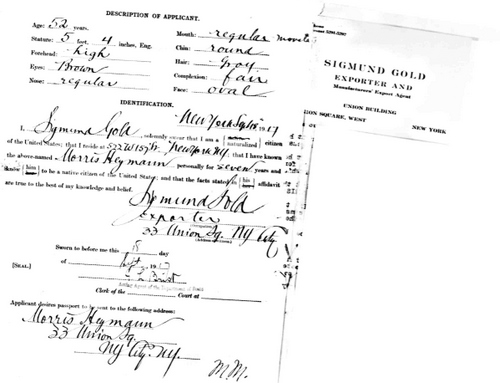 DESCRIPTION OF APPLICANT.
Age: 52 years.
Stature: 5 feet, 4 inches, Eng.
Forehead: high
Eyes: Brown
Nose: regular
Mouth: regular
Chin: round
Hair: Gray
Complexion: fair
Face: oval
IDENTIFICATION.
New York 1917
I, Sigmund Gold, solemnly swear that I am a naturalized citizen
of the United States; that I reside at New York NY; that I have known
the above-named Morris Heymann personally for seven years and
know him to be a native citizen of the United States; and that the facts stated in his affidavit
are true to the best of my knowledge and belief.
Sigmund Gold
exporter
33 Union Sq. NY City
Sworn to before me this day
of 1917
[SEAL.]
Clerk of the Court at
Applicant desires passport to be sent to the following address:
Morris Heymann
33 Union Sq.
NY City. NY.
M.M.
SIGMUND GOLD
EXPORTER AND
Manufacturers' Export Agent
UNION BUILDING
UNION SQUARE, WEST NEW YORK